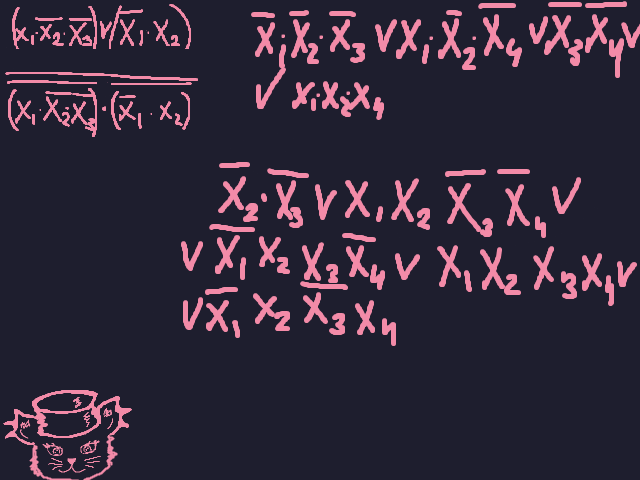 (x₁·x̅₂·x̅₃)∨(x̅₁·x₂)
(x₁·x̅₂·x̅₃)·(x̅₁·x₂)
x̅₁·x̅₂·x̅₃∨x₁·x̅₂·x̅₄∨x̅₃x̅₄∨
∨x₁·x₂·x₄
x̅₂·x̅₃∨x₁x₂x̅₃x̅₄∨
∨x̅₁x₂x₃x̅₄∨x₁x₂x₃x₄∨
∨x̅₁x₂x̅₃x₄